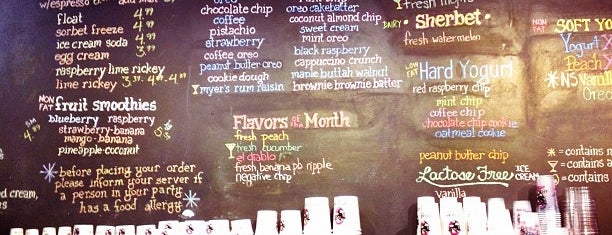 w/espresso
float 4.99
sorbet freeze 4.99
ice cream soda 4.99
egg cream 3.99
raspberry lime rickey
lime rickey 3.99
NON FAT fruit smoothies
blueberry raspberry
strawberry-banana
mango-banana
pineapple-coconut
SM 4.99
before placing your order
please inform your server if
a person in your party
has a food allergy
ed cream,
es
oreo
chocolate chip
coffee
pistachio
strawberry
coffee oreo
peanut butter oreo
cookie dough
myer's rum raisin
oreo cakebatter
coconut almond chip
sweet cream
mint oreo
black raspberry
cappuccino crunch
maple buttah walnut
brownie brownie batter
Flavors of the Month
fresh peach
fresh cucumber
el diablo
fresh banana pb ripple
negative chip
fresh
DAIRY • Sherbet •
fresh watermelon
LOW FAT Hard Yogurt
red raspberry chip
mint chip
coffee chip
chocolate chip cookie
oatmeal cookie
peanut butter chip
Lactose Free ICE CREAM
vanilla
NON FAT SOFT YO
Yogurt
Peach
NS Vanil
Oreo
* = contains n
= contains a
= contains